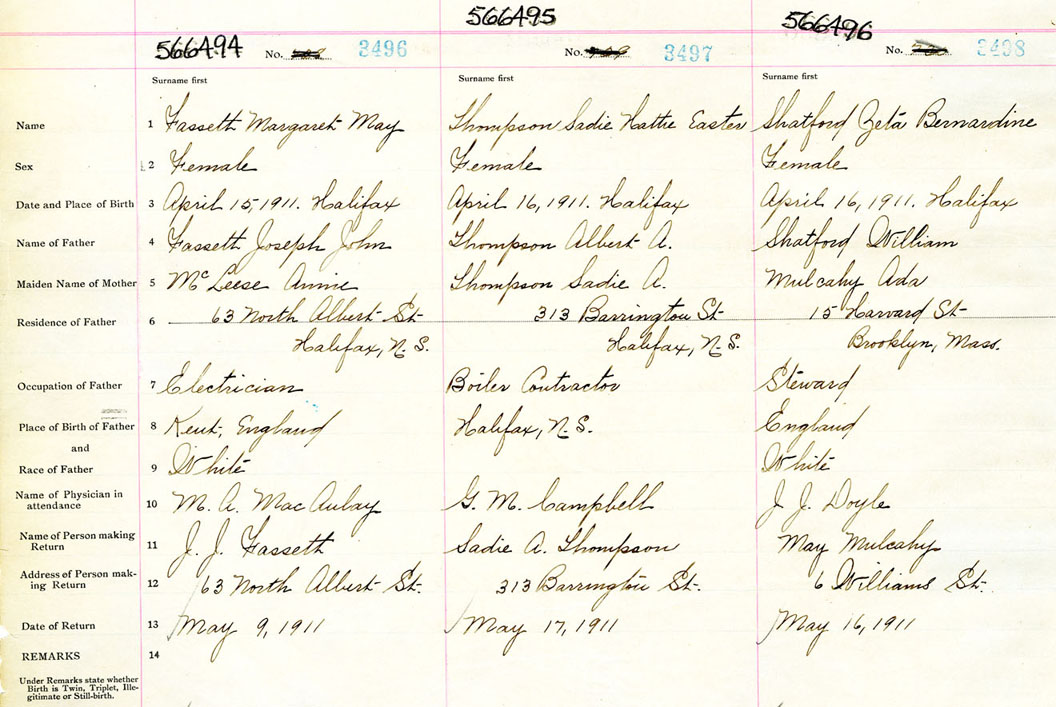 566494 No. 3496 566495 No. 3497 566496 No. 3498
Surname first Surname first Surname first
Name 1 Fassett Margaret May Thompson Sadie Hattie Easter Shatford Zeta Bernardine
Sex 2 Female Female Female
Date and Place of Birth 3 April 15, 1911. Halifax April 16, 1911. Halifax April 16, 1911. Halifax
Name of Father 4 Fassett Joseph John Thompson Albert A. Shatford William
Maiden Name of Mother 5 McLeese Annie Thompson Sadie A. Mulcahy Ada
Residence of Father 6 63 North Albert St 313 Barrington St 15 Harvard St
Halifax, N.S. Halifax, N.S. Brooklyn, Mass.
Occupation of Father 7 Electrician Boiler Contractor Steward
Place of Birth of Father 8 Kent, England Halifax, N.S. England
and
Race of Father 9 White White
Name of Physician in
attendance 10 M. A. MacAulay G. M. Campbell J. J. Doyle
Name of Person making
Return 11 J. J. Fassett Sadie A. Thompson May Mulcahy
Address of Person mak-
ing Return 12 63 North Albert St. 313 Barrington St. 6 Williams St.
Date of Return 13 May 9, 1911 May 17, 1911 May 16, 1911
REMARKS 14
Under Remarks state whether
Birth is Twin, Triplet, Ille-
gitimate or Still-birth.